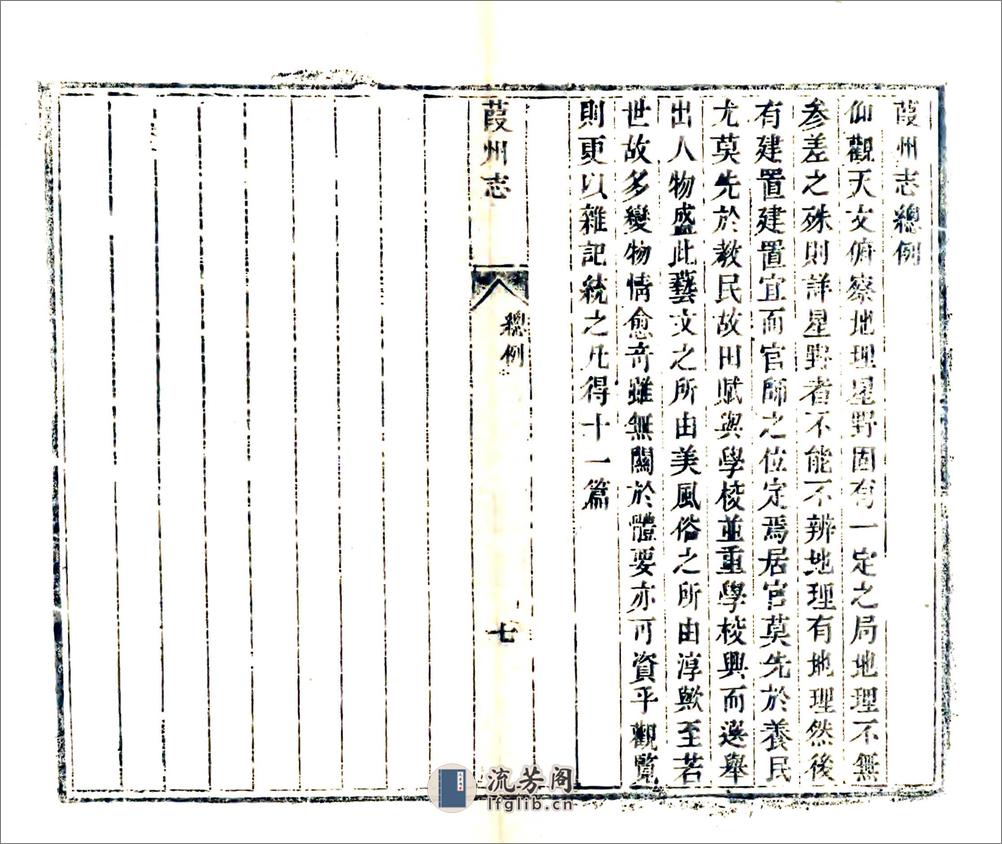 葭州志總例
仰觀天文俯察地理星野固有一定之局地理不無
參差之殊則詳星野者不能不辨地理有地理然後
有建置建置宜而官師之位定焉居官莫先於養民
尤莫先於教民故田賦與學校並重學校興而選舉
出人物盛此藝文之所由美風俗之所由淳歟至若
世故多變物情愈奇雖無關於體要亦可資乎觀覽
則更以雜記統之凡得十一篇
葭州志
總例
七
流芳阁
lfglib.cn